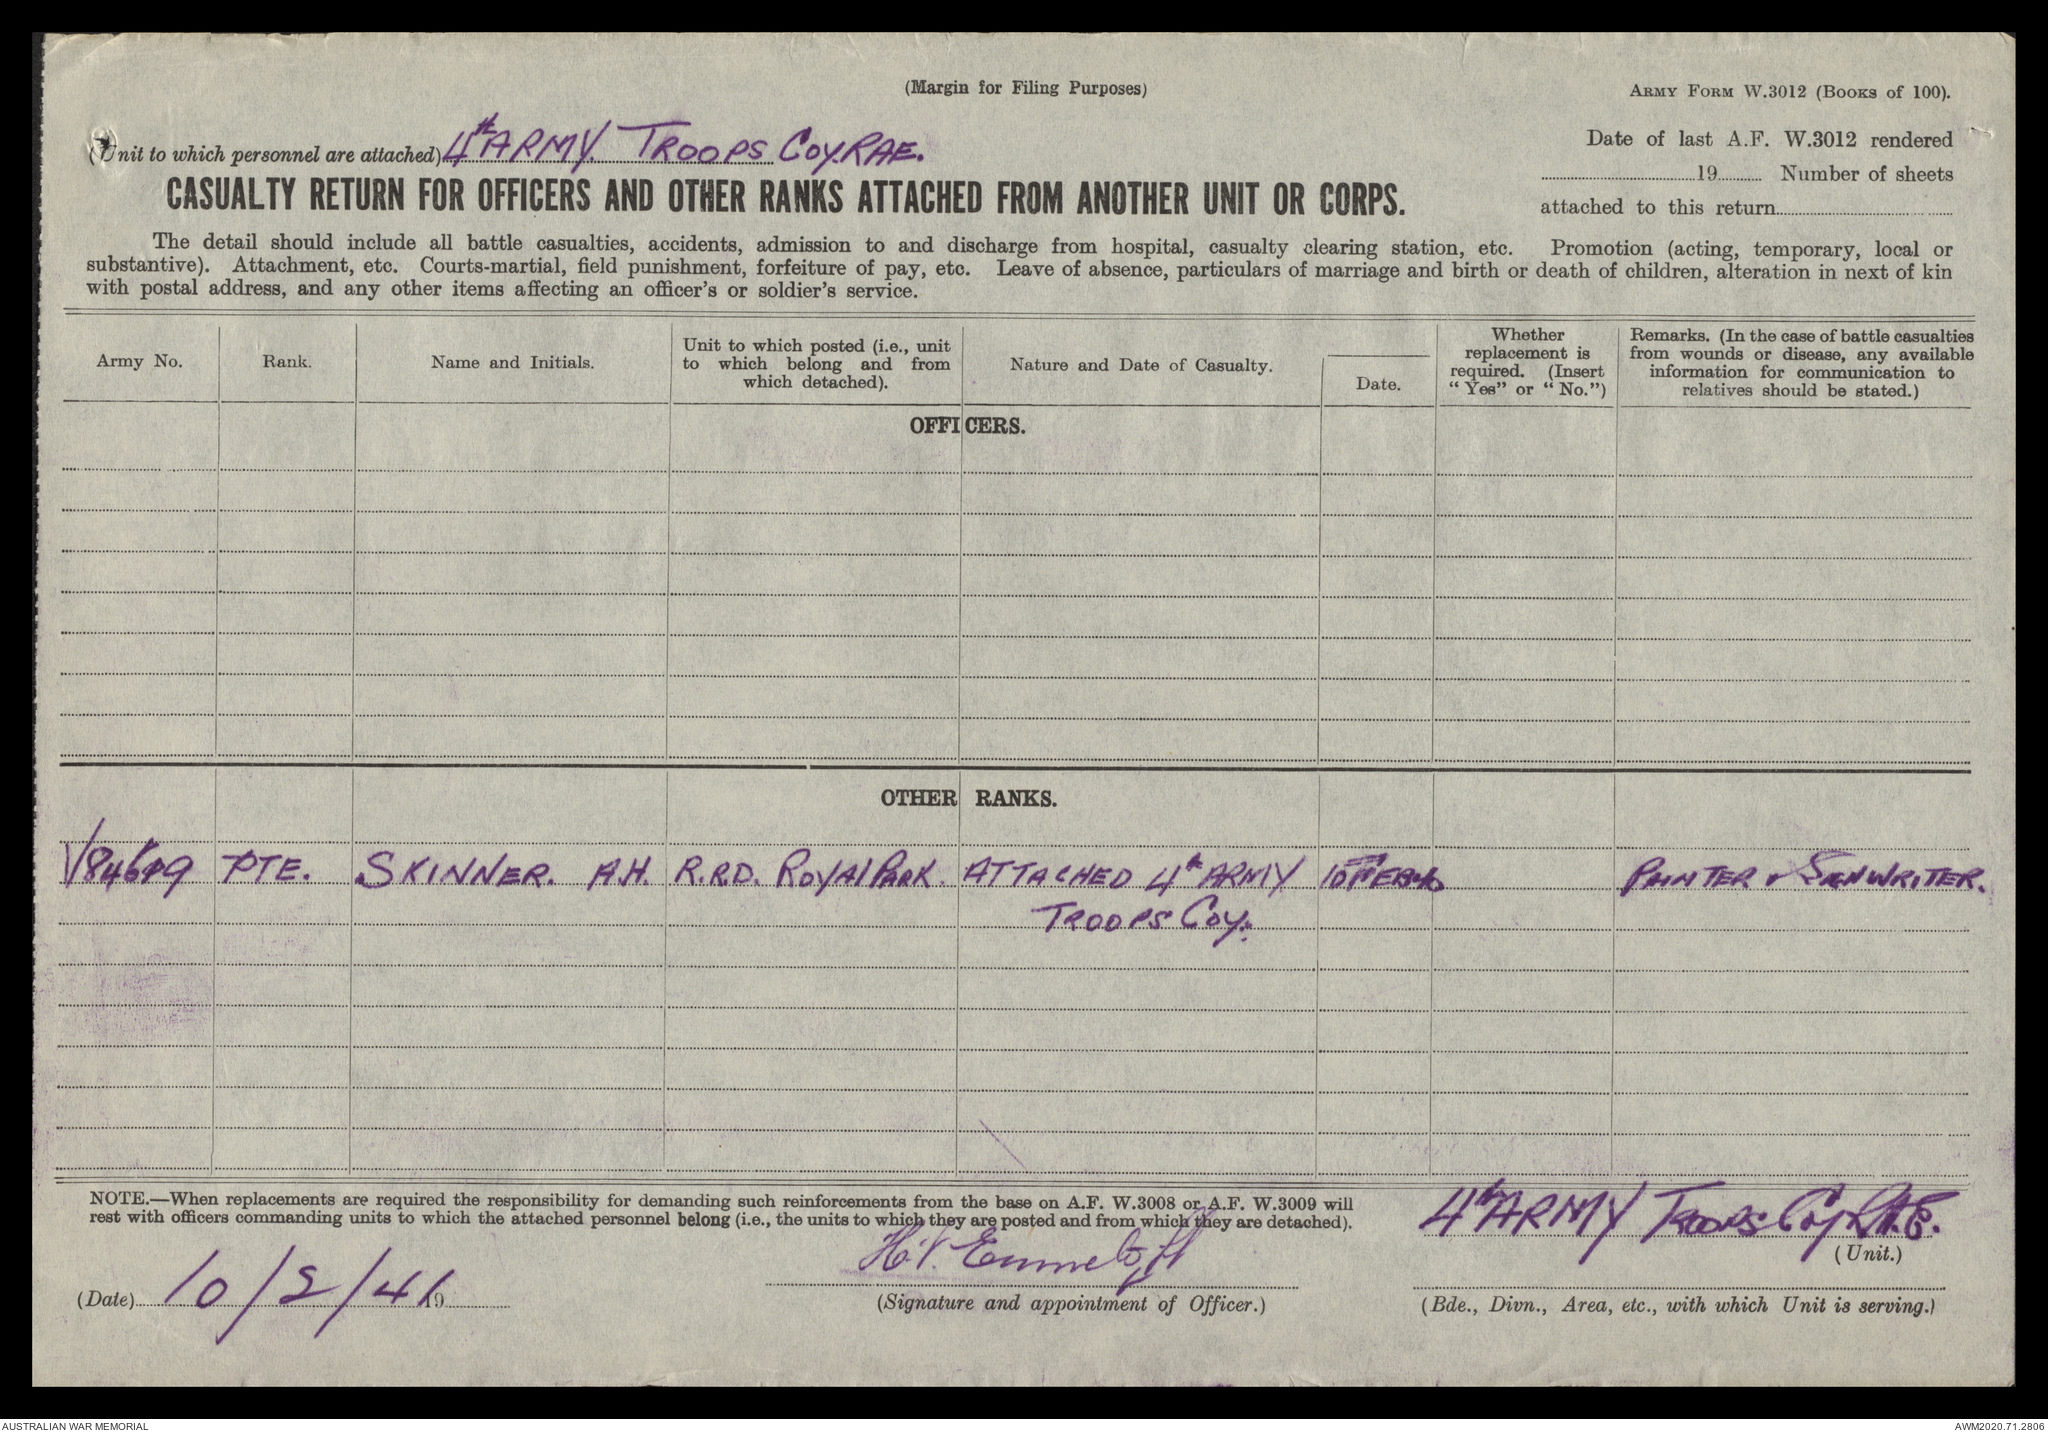 (Margin for Filing Purposes)
ARMY FORM W.3012 (BOOKS of 100).
(Unit to which personnel are attached) 4th ARMY. TROOPS COY. RAE.
Date of last A.F. W.3012 rendered
19 Number of sheets
attached to this return
CASUALTY RETURN FOR OFFICERS AND OTHER RANKS ATTACHED FROM ANOTHER UNIT OR CORPS.
The detail should include all battle casualties, accidents, admission to and discharge from hospital, casualty clearing station, etc. Promotion (acting, temporary, local or
substantive). Attachment, etc. Courts-martial, field punishment, forfeiture of pay, etc. Leave of absence, particulars of marriage and birth or death of children, alteration in next of kin
with postal address, and any other items affecting an officer's or soldier's service.
Army No.
Rank.
Name and Initials.
Unit to which posted (i.e., unit
to which belong and from
which detached).
Nature and Date of Casualty.
Date.
Whether
replacement is
required. (Insert
"Yes" or "No.")
Remarks. (In the case of battle casualties
from wounds or disease, any available
information for communication to
relatives should be stated.)
OFFICERS.
OTHER RANKS.
PTE. SKINNER. A.H. R.R.D. ROYAL PARK. ATTACHED 4th ARMY PAINTER & SIGNWRITER.
TROOPS COY.
NOTE.—When replacements are required the responsibility for demanding such reinforcements from the base on A.F. W.3008 or A.F. W.3009 will
rest with officers commanding units to which the attached personnel belong (i.e., the units to which they are posted and from which they are detached).
4th ARMY TROOPS Coy R.A.E.
(Unit.)
(Date) 10/2/41 19
(Signature and appointment of Officer.)
(Bde., Divn., Area, etc., with which Unit is serving.)
AUSTRALIAN WAR MEMORIAL
AWM2020.71.2806